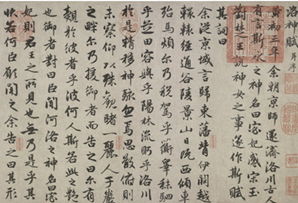 洛神賦 并序
黃初三年余朝京師還濟洛川古人
有言斯水之神名曰宓妃感宋玉
對楚王說神女之事遂作斯賦
其詞曰
余從京域言歸東藩背伊闕越
轘轅經通谷陵景山日既西傾車
殆馬煩爾乃稅駕乎蘅皋秣駟
乎芝田容與乎陽林流眄乎洛川
於是精移神駭忽焉思散俯則
未察仰以殊觀睹一麗人于巖
之畔爾乃援御者而告之曰爾有
覿於彼者乎彼何人斯若此之豔
也御者對曰臣聞河洛之神名曰宓
妃則君王之所見也無乃是乎其
狀若何臣願聞之余告之曰其形